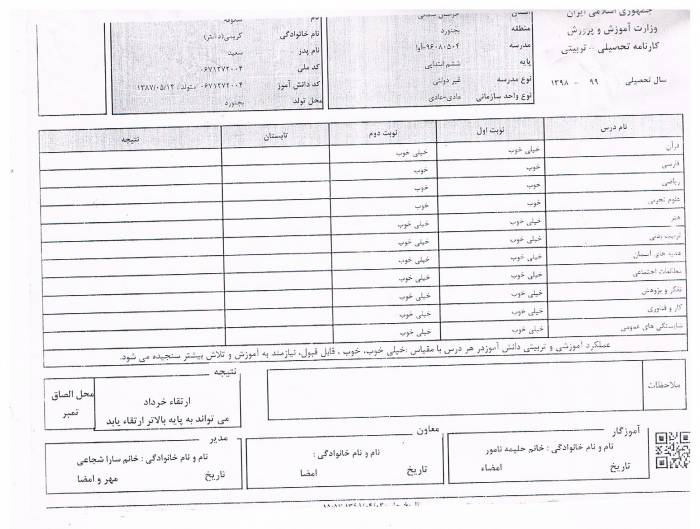 جمهوری اسلامی ایران
وزارت آموزش و پرورش
کارنامه تحصیلی - تربیتی
سال تحصیلی ۹۹ - ۱۳۹۸
استان خراسان شمالی
منطقه بجنورد
مدرسه ۹۶۰۸۰۵۰۴-آوا
پایه ششم ابتدایی
نوع مدرسه غیر دولتی
نوع واحد سازمانی عادی-عادی
نام
نام خانوادگی کریمی(دختر)
نام پدر سعید
کد ملی ۰۶۷۱۲۷۲۰۰۴
کد دانش آموز ۰۶۷۱۲۷۲۰۰۴ متولد: ۱۳۸۷/۰۵/۱۲
محل تولد بجنورد
نام درس نوبت اول نوبت دوم تابستان نتیجه
قرآن خیلی خوب خیلی خوب
فارسی خوب خوب
ریاضی خوب خوب
علوم تجربی خوب خوب
هنر خیلی خوب خیلی خوب
تربیت بدنی خیلی خوب خیلی خوب
هدیه های آسمان خیلی خوب خیلی خوب
مطالعات اجتماعی خیلی خوب خیلی خوب
تفکر و پژوهش خیلی خوب خیلی خوب
کار و فناوری خیلی خوب خیلی خوب
شایستگی های عمومی خیلی خوب خیلی خوب
عملکرد آموزشی و تربیتی دانش آموزدر هر درس با مقیاس :خیلی خوب، خوب ، قابل قبول، نیازمند به آموزش و تلاش بیشتر سنجیده می شود.
ملاحظات
نتیجه
ارتقاء خرداد
می تواند به پایه بالاتر ارتقاء یابد
محل الصاق
تمبر
آموزگار
نام و نام خانوادگی : خانم حلیمه نامور
تاریخ امضاء
معاون
نام و نام خانوادگی :
تاریخ امضا
مدیر
نام و نام خانوادگی : خانم سارا شجاعی
تاریخ مهر و امضا